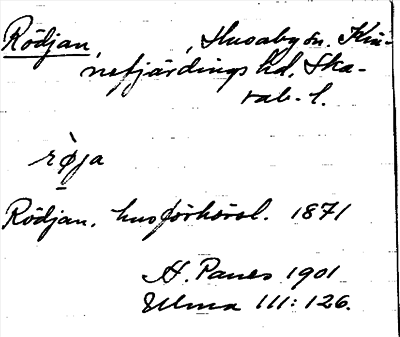 Rödjan, , Husaby sn. Kin-
nefjärdings hd. Ska-
rab. l.
rø̀ja
Rödjan. husförhörsl. 1871
H. Panes 1901
Ulma 111: 126.